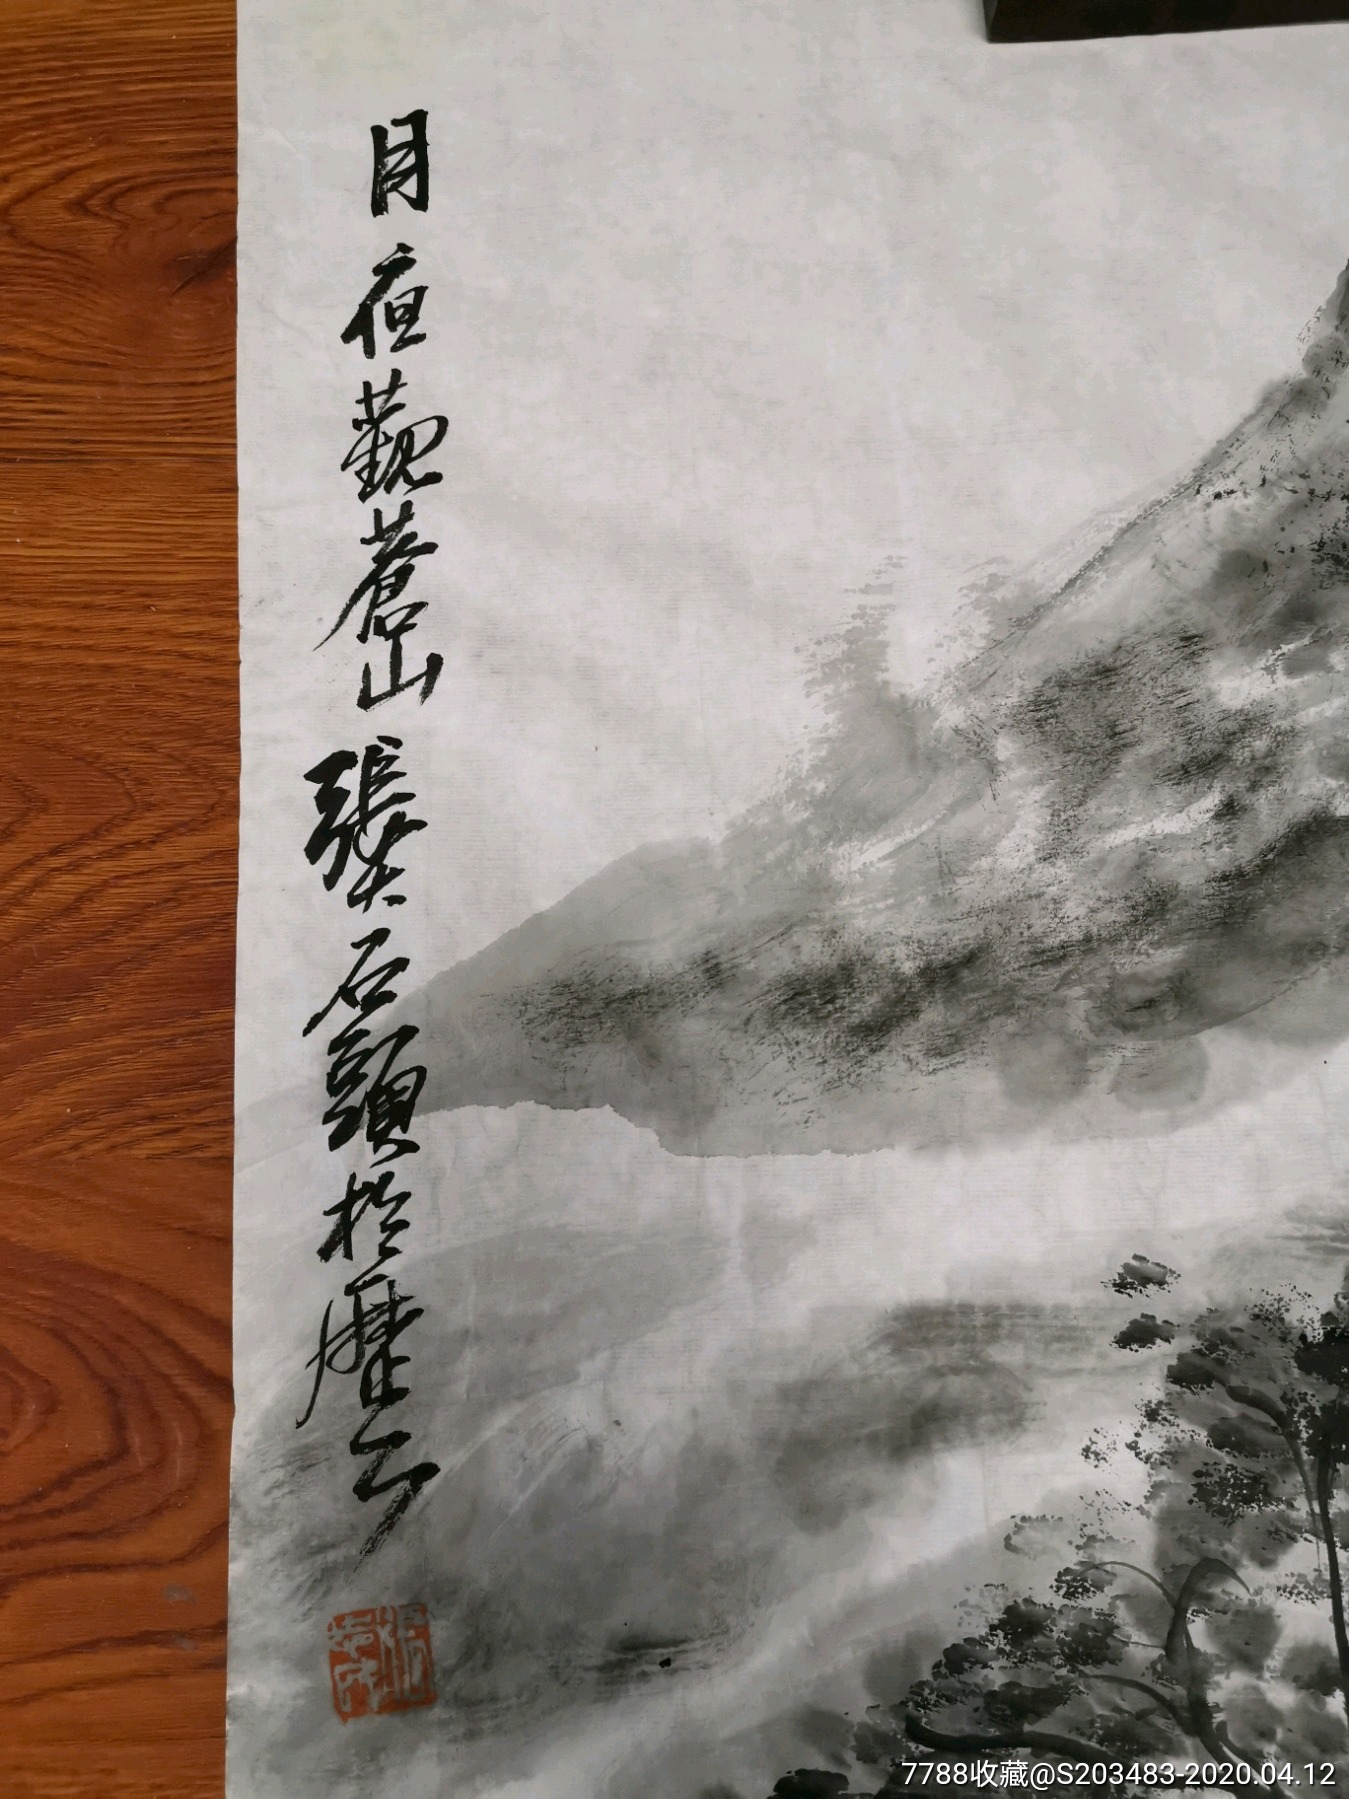 月夜觀蒼山 張大石頭於歷下
張志民
7788收藏@S203483-2020.04.12